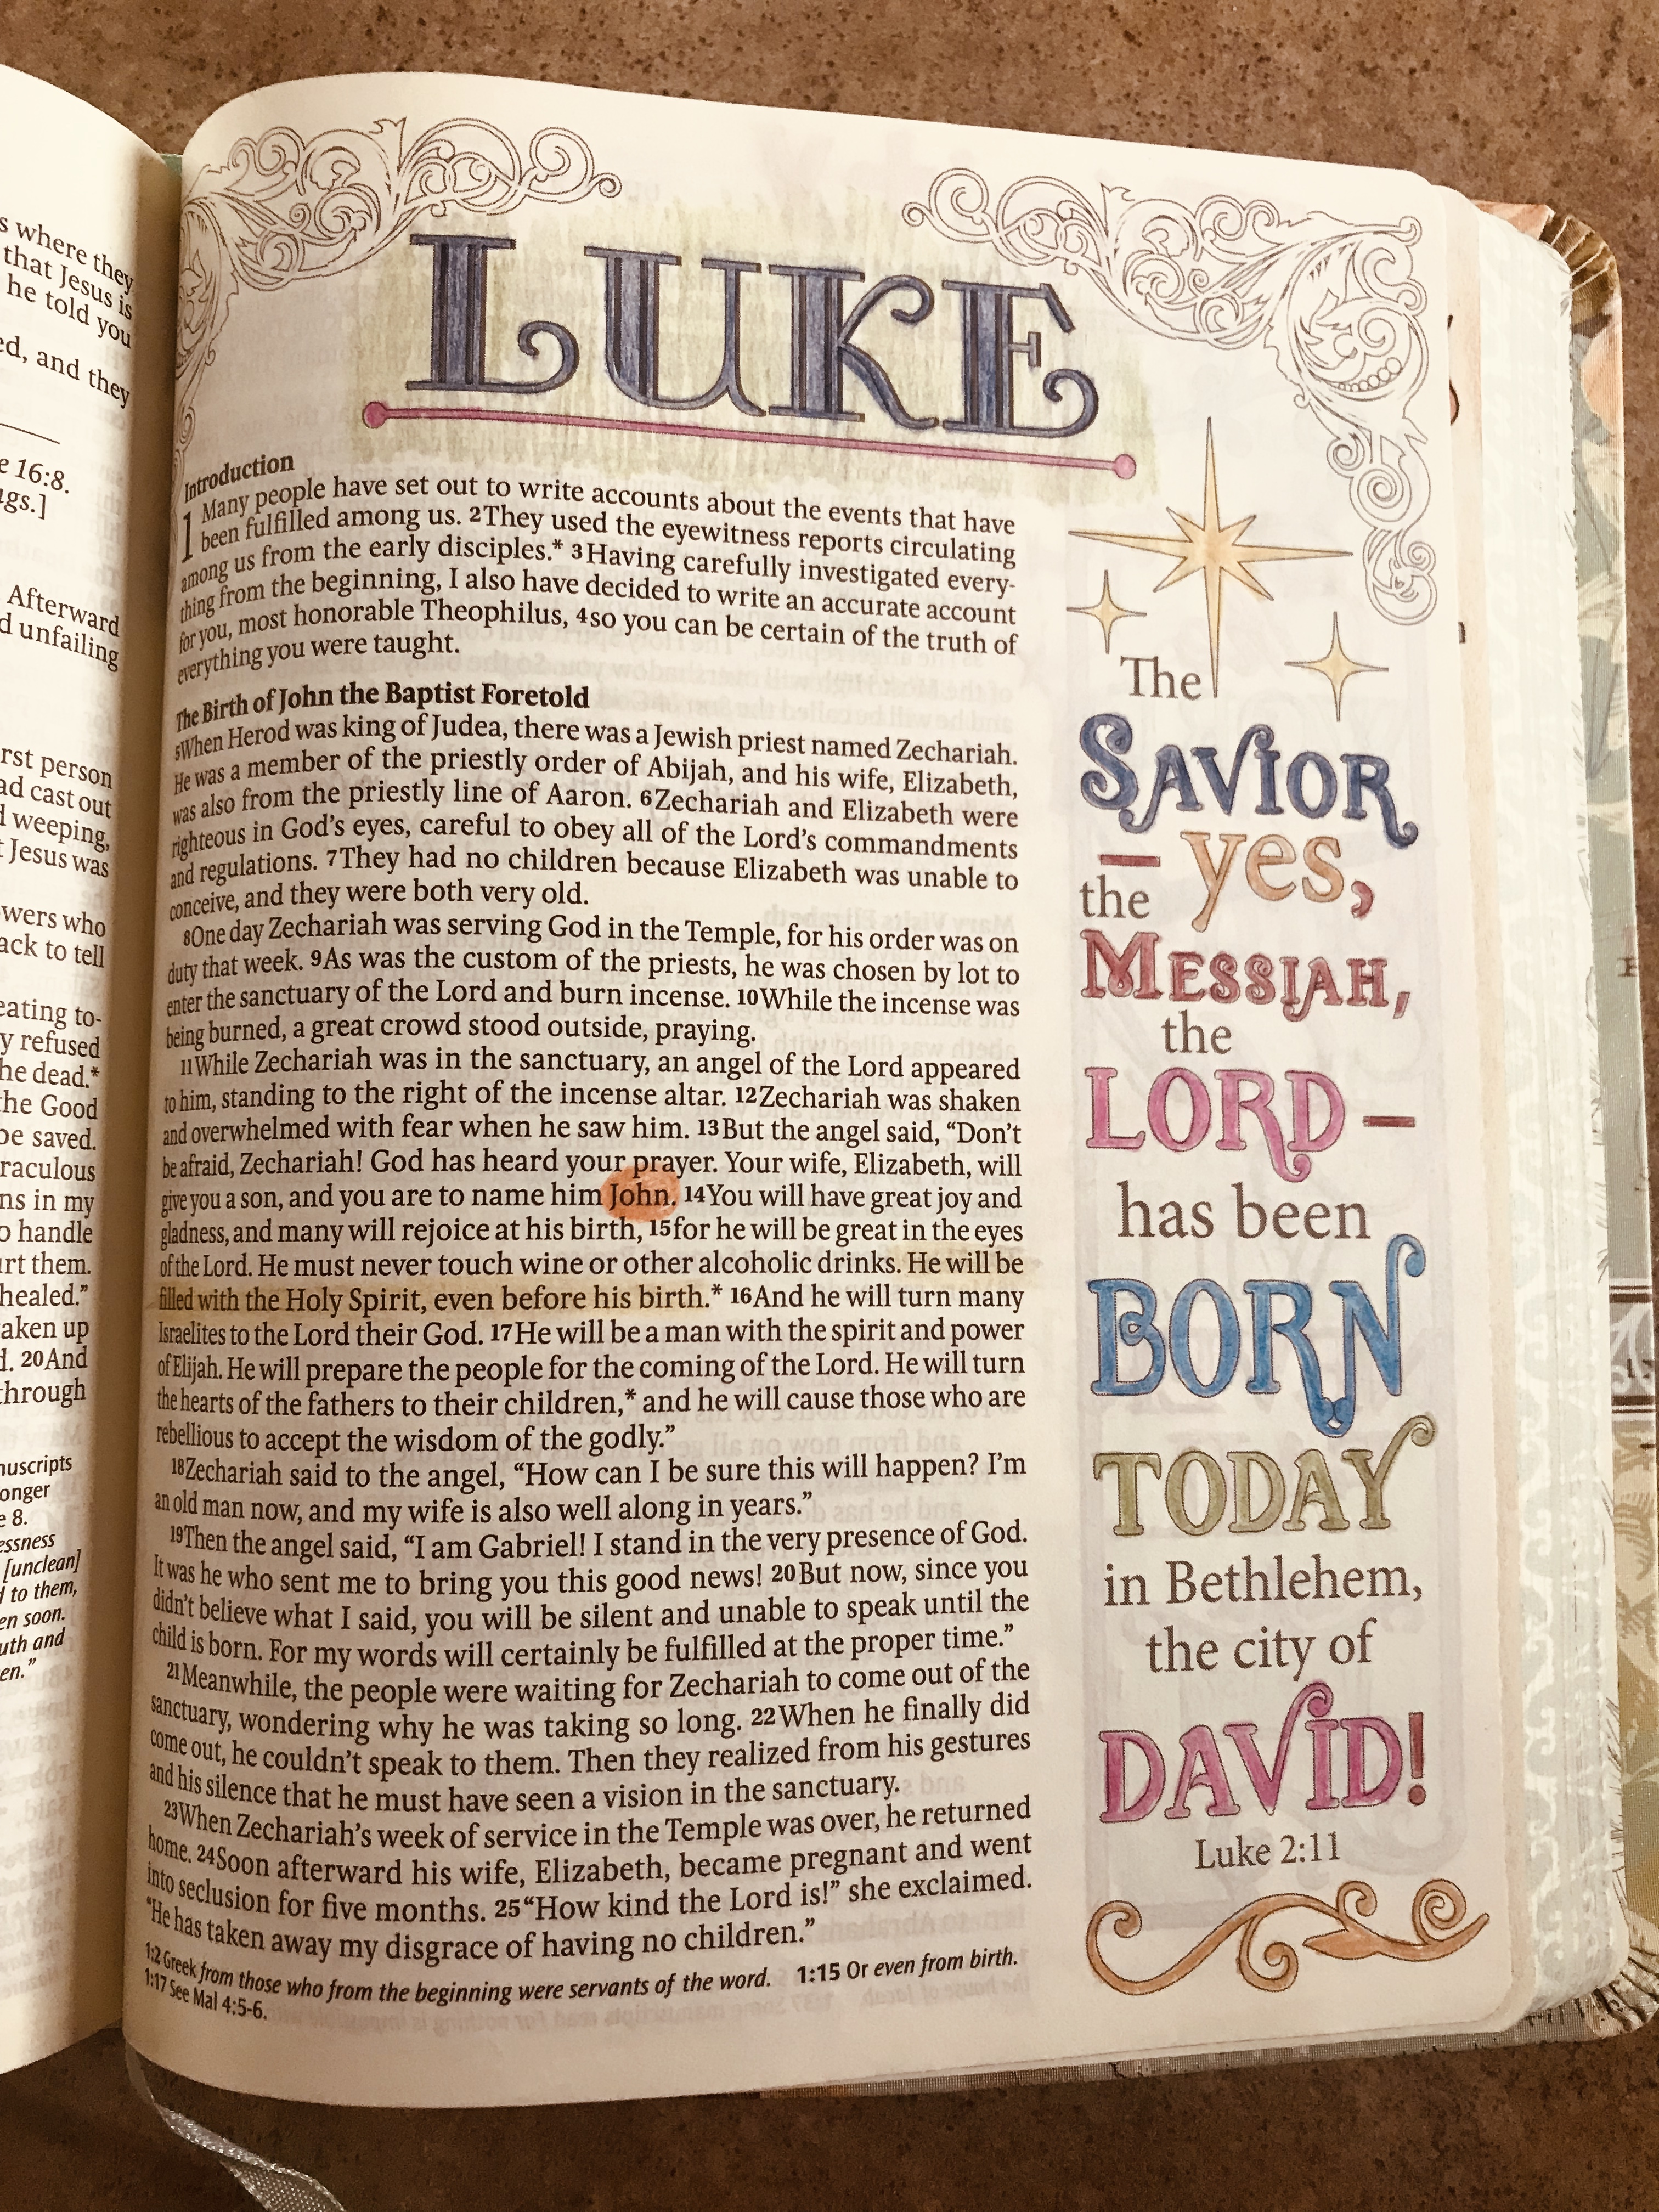 s where they
that Jesus is
he told you
ed, and they
e 16:8.
ngs.]
Afterward
d unfailing
rst person
ad cast out
d weeping,
t Jesus was
owers who
ack to tell
eating to-
y refused
he dead.*
the Good
be saved.
raculous
ns in my
o handle
urt them.
healed.”
aken up
d. 20And
through
nuscripts
onger
e 8.
essness
[unclean]
d to them,
en soon.
uth and
en.”
LUKE
Introduction
1 Many people have set out to write accounts about the events that have
been fulfilled among us. 2They used the eyewitness reports circulating
among us from the early disciples.* 3Having carefully investigated every-
thing from the beginning, I also have decided to write an accurate account
for you, most honorable Theophilus, 4so you can be certain of the truth of
everything you were taught.
The Birth of John the Baptist Foretold
5When Herod was king of Judea, there was a Jewish priest named Zechariah.
He was a member of the priestly order of Abijah, and his wife, Elizabeth,
was also from the priestly line of Aaron. 6Zechariah and Elizabeth were
righteous in God’s eyes, careful to obey all of the Lord’s commandments
and regulations. 7They had no children because Elizabeth was unable to
conceive, and they were both very old.
8One day Zechariah was serving God in the Temple, for his order was on
duty that week. 9As was the custom of the priests, he was chosen by lot to
enter the sanctuary of the Lord and burn incense. 10While the incense was
being burned, a great crowd stood outside, praying.
11While Zechariah was in the sanctuary, an angel of the Lord appeared
to him, standing to the right of the incense altar. 12Zechariah was shaken
and overwhelmed with fear when he saw him. 13But the angel said, “Don’t
be afraid, Zechariah! God has heard your prayer. Your wife, Elizabeth, will
give you a son, and you are to name him John. 14You will have great joy and
gladness, and many will rejoice at his birth, 15for he will be great in the eyes
of the Lord. He must never touch wine or other alcoholic drinks. He will be
filled with the Holy Spirit, even before his birth.* 16And he will turn many
Israelites to the Lord their God. 17He will be a man with the spirit and power
of Elijah. He will prepare the people for the coming of the Lord. He will turn
the hearts of the fathers to their children,* and he will cause those who are
rebellious to accept the wisdom of the godly.”
18Zechariah said to the angel, “How can I be sure this will happen? I’m
an old man now, and my wife is also well along in years.”
19Then the angel said, “I am Gabriel! I stand in the very presence of God.
It was he who sent me to bring you this good news! 20But now, since you
didn’t believe what I said, you will be silent and unable to speak until the
child is born. For my words will certainly be fulfilled at the proper time.”
21Meanwhile, the people were waiting for Zechariah to come out of the
sanctuary, wondering why he was taking so long. 22When he finally did
come out, he couldn’t speak to them. Then they realized from his gestures
and his silence that he must have seen a vision in the sanctuary.
23When Zechariah’s week of service in the Temple was over, he returned
home. 24Soon afterward his wife, Elizabeth, became pregnant and went
into seclusion for five months. 25“How kind the Lord is!” she exclaimed.
“He has taken away my disgrace of having no children.”
1:2 Greek from those who from the beginning were servants of the word. 1:15 Or even from birth.
1:17 See Mal 4:5-6.
The
SAVIOR
— yes,
the
MESSIAH,
the
LORD —
has been
BORN
TODAY
in Bethlehem,
the city of
DAVID!
Luke 2:11